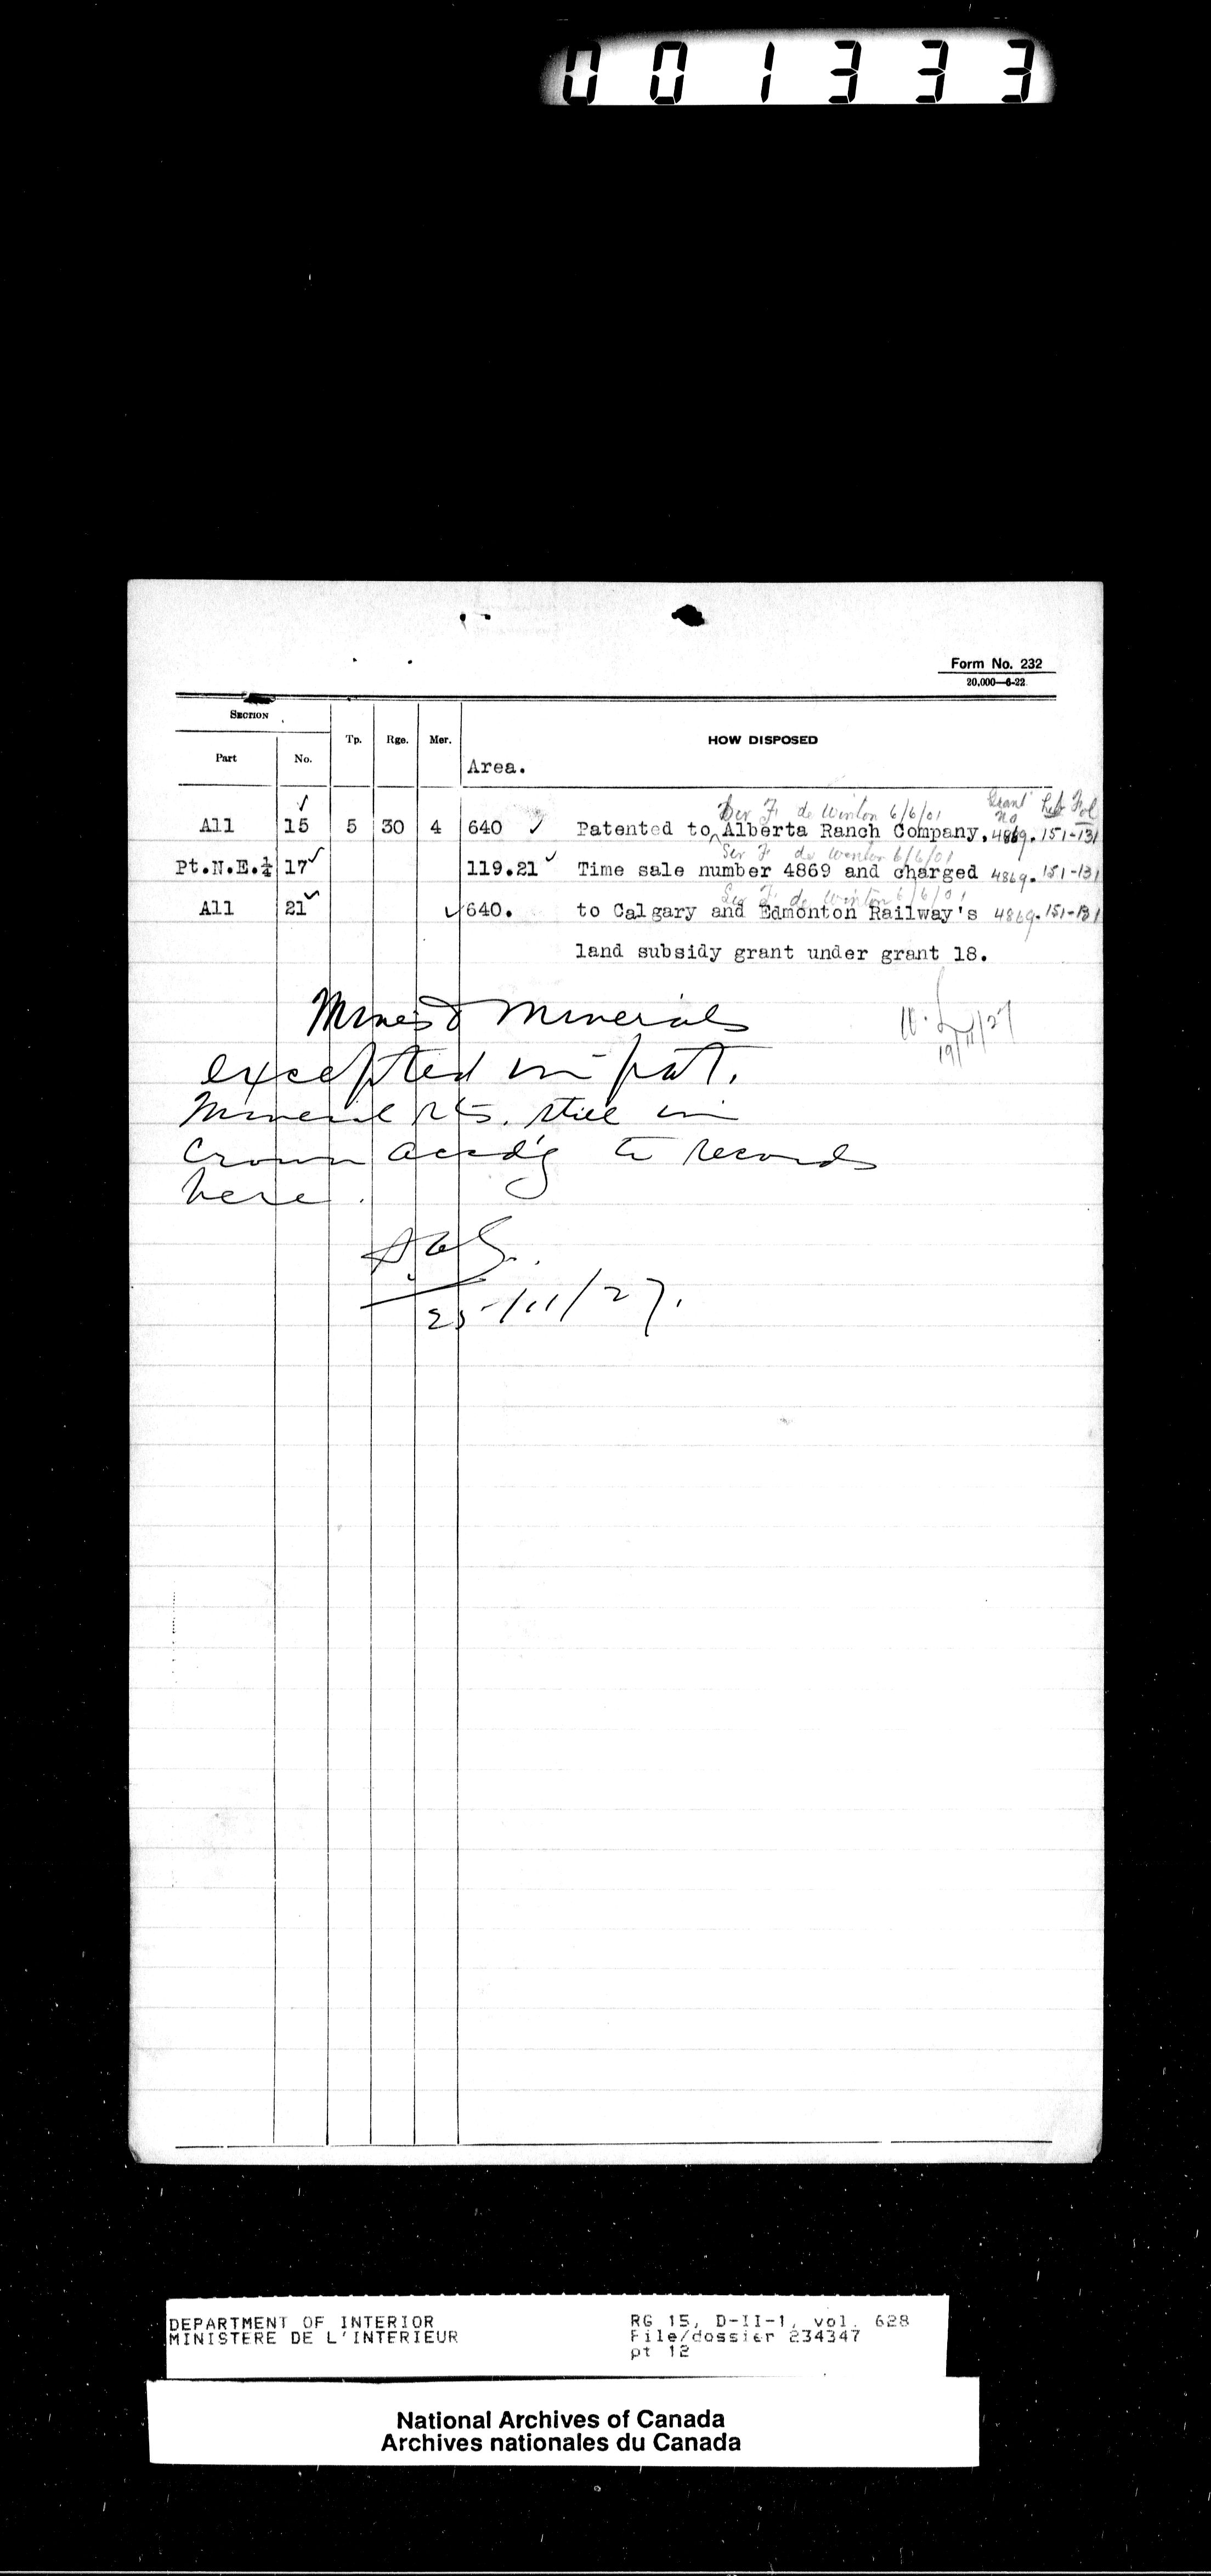 001333
Form No. 232
20,000—6-22
SECTION
Part No. Tp. Rge. Mer. Area. HOW DISPOSED
Grant No Lib Fol
de Winton 6/6/01
All 15 5 30 4 640 Patented to Alberta Ranch Company, 4869. 151-131
de Winton 6/6/01
Pt.N.E.¼ 17 119.21 Time sale number 4869 and charged 4869. 151-131
de Winton 6/6/01
All 21 640. to Calgary and Edmonton Railway's 4869. 151-131
land subsidy grant under grant 18.
19/11/27
Mines & Minerals
excepted in pat.
Mineral rts. still in
Crown accd'g to records
here.
25/11/27.
DEPARTMENT OF INTERIOR
MINISTERE DE L'INTERIEUR
RG 15, D-II-1, vol. 628
File/dossier 234347
pt 12
National Archives of Canada
Archives nationales du Canada